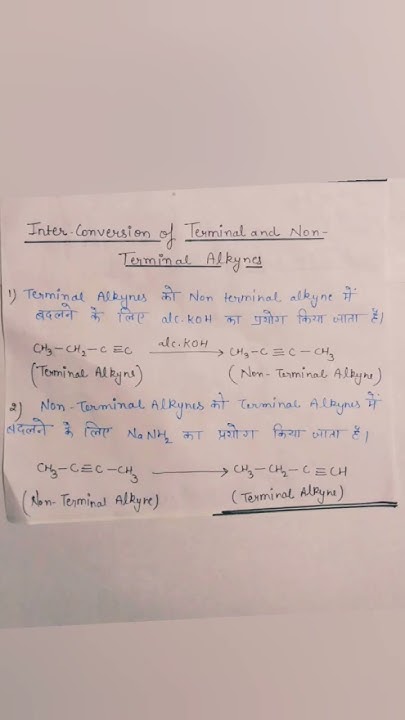 Inter-Conversion of Terminal and Non-
Terminal Alkynes
1) Terminal Alkynes को Non terminal alkyne में
बदलने के लिए alc. KOH का प्रयोग किया जाता है।
CH₃-CH₂-C≡C alc. KOH → CH₃-C≡C-CH₃
(Terminal Alkyne) (Non-Terminal Alkyne)
2) Non-Terminal Alkynes को Terminal Alkynes में
बदलने के लिए NaNH₂ का प्रयोग किया जाता है।
CH₃-C≡C-CH₃ → CH₃-CH₂-C≡CH
(Non-Terminal Alkyne) (Terminal Alkyne)